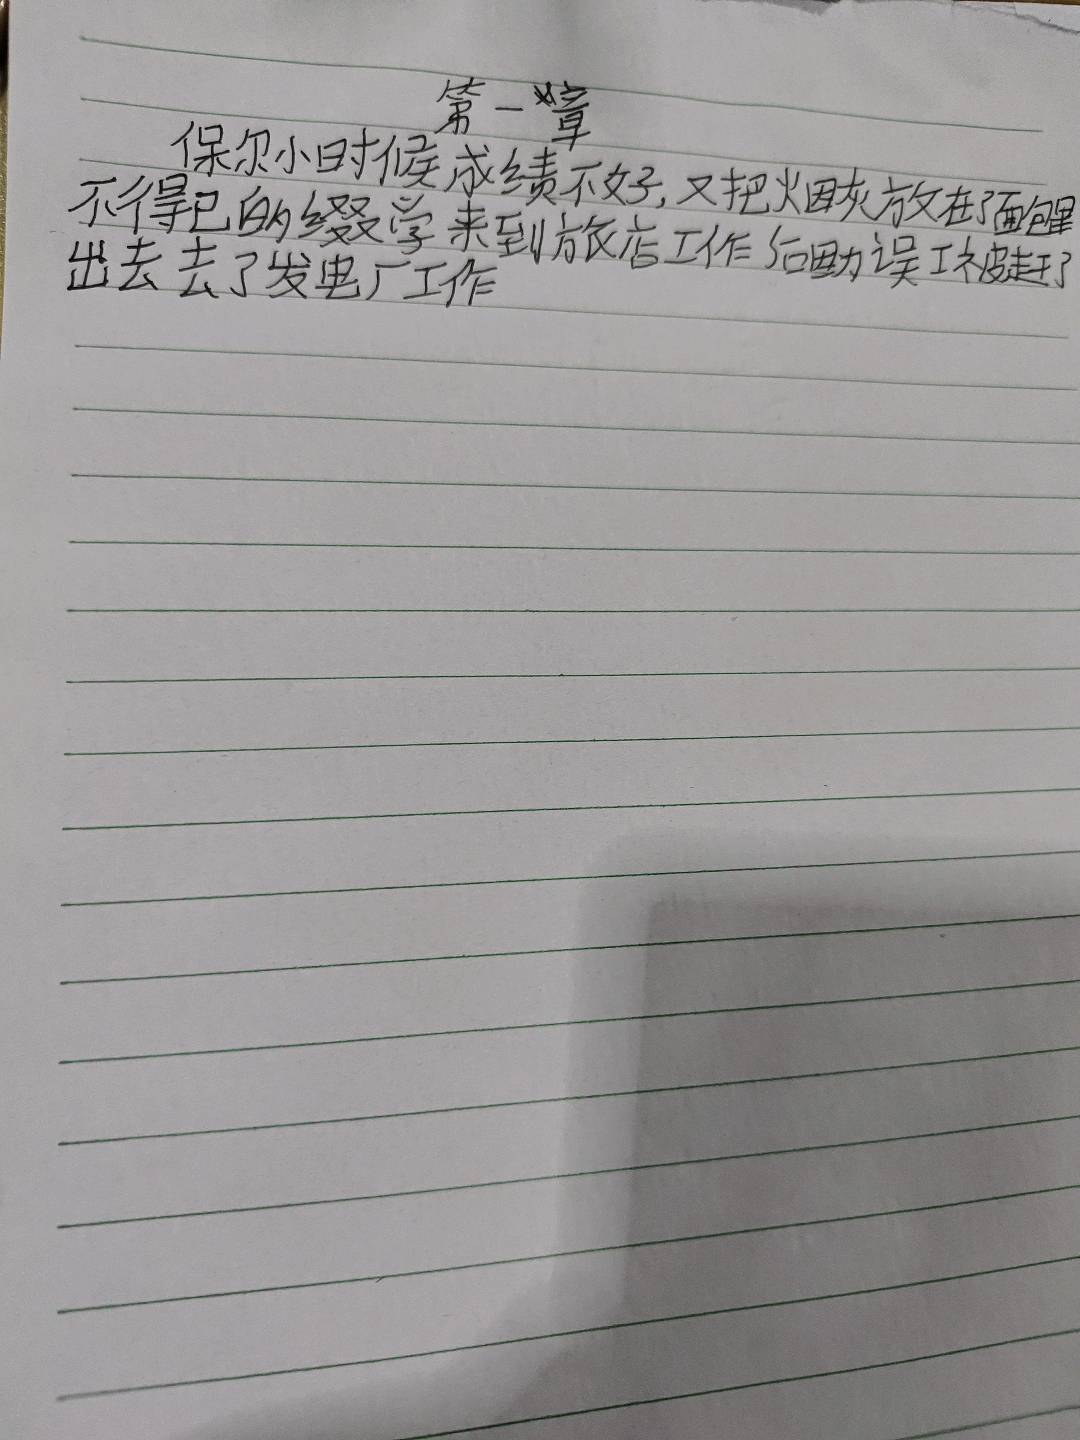 第一章
保尔小时候成绩不好,又把烟灰放在了面包里
不得已的缀学来到旅店工作 后因为误工被赶了
出去去了发电厂工作